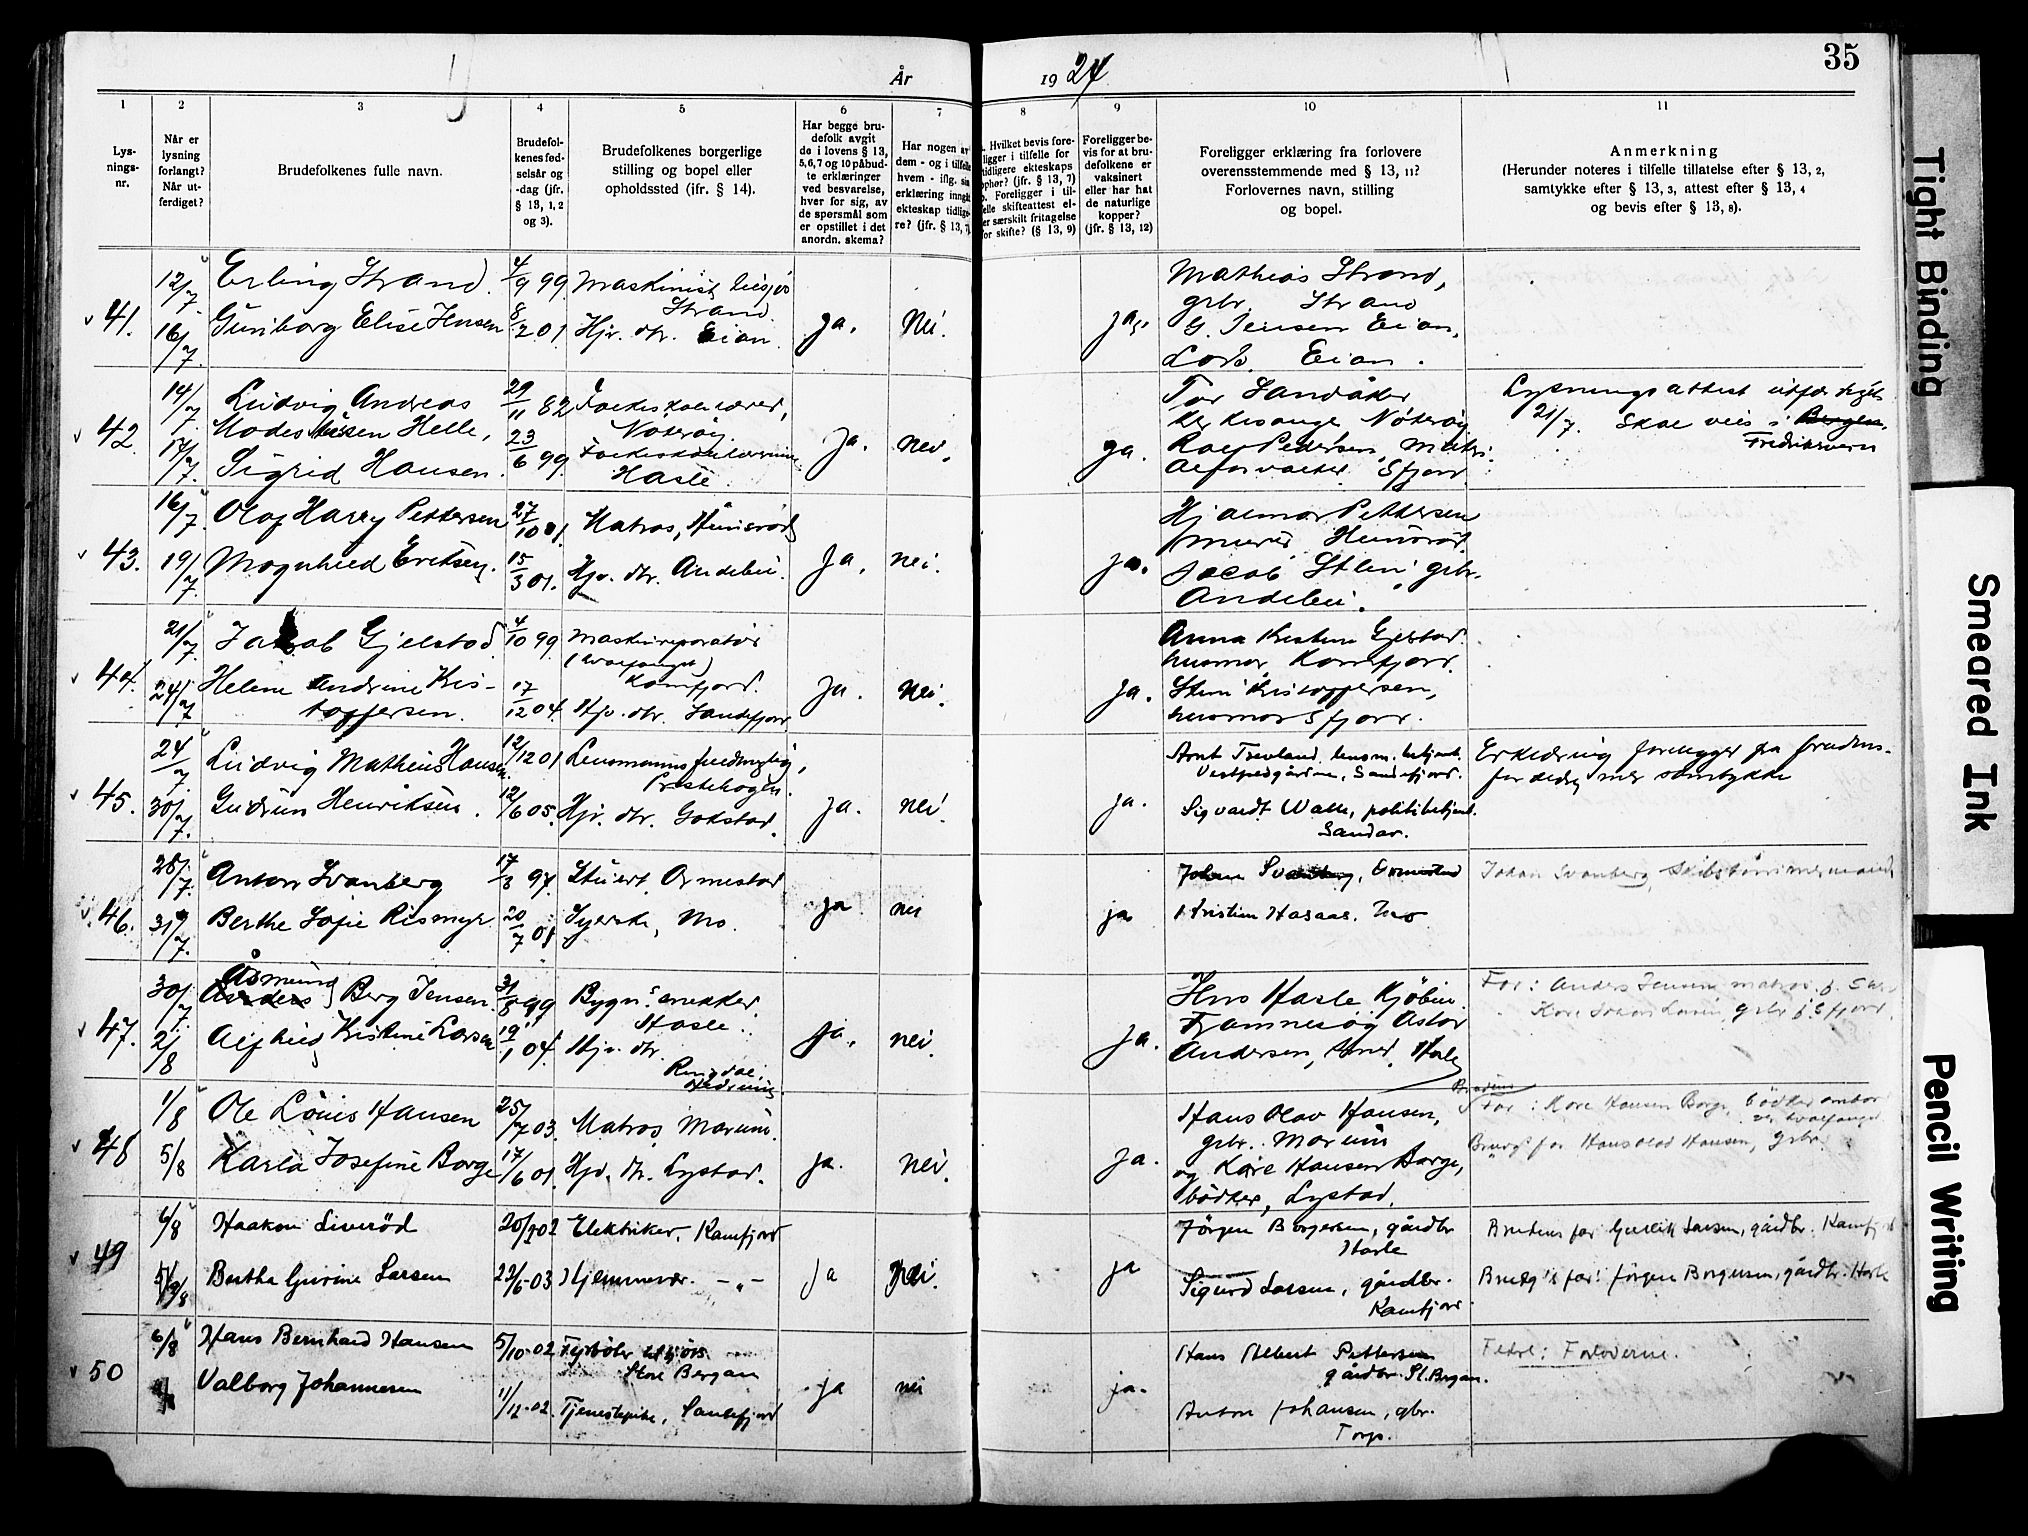 År 1924
35
1 2 3 4 5 6 7 8 9 10 11
Lys-
nings-
nr.
Når er
lysning
forlangt?
Når ut-
ferdiget?
Brudefolkenes fulle navn.
Brudefol-
kenes fød-
selsår og
-dag (jfr.
§ 13, 1, 2
og 3).
Brudefolkenes borgerlige
stilling og bopel eller
opholdssted (ifr. § 14).
Har begge bru-
defolk avgit
de i lovens § 13,
5,6,7 og 10 påbud-
te erklæringer
ved besvarelse,
hver for sig, av
de spørsmål som
er opstillet i det
anordn. skema?
Har nogen av
dem - og i tilfelle
hvem - iflg. sin
erklæring inngått
ekteskap tidlige-
re? (jfr. § 13, 7)
Hvilket bevis fore-
ligger i tilfelle for
tidligere ekteskaps
ophør? (jfr. § 13, 7)
Foreligger i til-
felle skifteattest el-
er særskilt fritagelse
for skifte? (§ 13, 9)
Foreligger be-
vis for at bru-
defolkene er
vaksinert
eller har hat
de naturlige
kopper?
(jfr. § 13, 12)
Foreligger erklæring fra forlovere
overensstemmende med § 13, 11?
Forlovernes navn, stilling
og bopel.
Anmerkning
(Herunder noteres i tilfelle tillatelse efter § 13, 2,
samtykke efter § 13, 3, attest efter § 13, 4
og bevis efter § 13, 8).
41. 12/7. Erling Strand. 4/9 99. Maskinist,
Strand.
16/7. Gunborg Elise Jensen 8/2 01. Hjv. dtr. Eian. ja. Nei. ja.
Mathias Strand,
grbr. Strand
G. Jensen Eian,
Eian.
42. 14/7. Ludvig Andreas 29/11 82 Folkeskolelærer,
Modestusen Helle, Nøterøy.
17/7. Sigrid Hansen. 23/6 99. Folkeskolelærerinne
Hasle. Ja. nei. ja.
Tor Sandåker
Nøterøy.
Rolf Pedersen,
Sfjord.
Lysningsattest utferdiget
21/7. Skal vies i Bergen.
Fredriksvern
43. 16/7. Olaf Harry Pettersen 27/10 01. Matros, Hunsrød
19/7. Magnhild Eriksen. 15/3 01. Hjv. dtr. Andebu. Ja. nei. ja.
Hjalmar Pettersen
murer Hunsrød.
Jacob Stlen, grbr.
Andebu.
44. 21/7. Jakob Gjelstad 4/10 99 Maskinreparatør
(hvalfangst)
Kamfjord.
24/7 Helene Andrine Kris-
toffersen. 17/12 04. Hjv. dtr. Sandefjord Ja. nei. Ja.
Anna Kristine Gjelstad.
husmor, Kamfjord.
Stine Kristoffersen,
husmor Sfjord.
45. 24/7. Ludvig Mathias Hansen. 12/12 01 Lensmannsfuldmektig,
Prestehagen.
30/7. Gudrun Henriksen. 12/6 05. Hjv. dtr. Gokstad. ja. nei. ja.
Arnt Trevland. lensm. betjent.
Vestfedgården, Sandefjord.
Sigvardt Walle, politibetjent.
Sandar.
Erklæring foreligger fra brudens
foreldre, med samtykke
46. 28/7. Anton Svanberg 17/8 97. Stuert. Ormestad
31/7. Berthe Sofie Rismyr 20/7 01 Syerske, Mo. ja nei ja
Johan Svanberg, Ormestad
Kristian Haraas. Mo
Johan Svanberg, Skibstømmermand
47. 30/7. Åsmund
Anders Berg Jensen. 31/8 99 Bygn.snekker.
Hasle.
2/8 Alfhild Kristine Larsen 19/1 04. Hjv. dtr. ja. nei. Ja.
Hans Hasle Kjøbm.
Framnesøy Astor
Andersen, smed. Hasle
Far: Anders Jensen matros.
Kåre Johan Larsen, grbr. Sfjord.
48 1/8 Ole Louis Hansen 25/7 03. Matros Marum.
5/8 Karla Josefine Borge 17/6 01. Hjv. dtr. Lystad. ja. nei. ja.
Hans Olav Hansen,
grbr. Marum
og Kåre Hansen Borge,
bødker, Lystad.
Brudens
Far: Kåre Hansen Borge, bødker ombord
Brudg. far Hans Olav Hansen, grbr.
49 4/8 Haakon Liverød 20/7 02 Elektriker, Kamfjord
Bertha Gurine Larsen 23/6-03 Hjemmevær. — „ — ja nei. ja
Jørgen Borgersen, gårdbr.
Hasle
Sigurd Larsen, gårdbr.
Kamfjord.
Brudens far Gullik Larsen, gårdbr. Kamfjord
Brudg's far: Jørgen Borgersen, gårdbr. Hasle
50 6/8 Hans Bernhard Hansen 5/10-02 Fyrbøter tilsjøs.
Store Bergan
Valborg Johannesen 11/12-02. Tjenestepike, Sandefjord ja nei ja.
Hans Albert Pettersen
gårdbr. St. Bergan.
Anton Johansen, gbr.
Torp.
Fedre: Forloverne.
Tight Binding
Smeared Ink
Pencil Writing